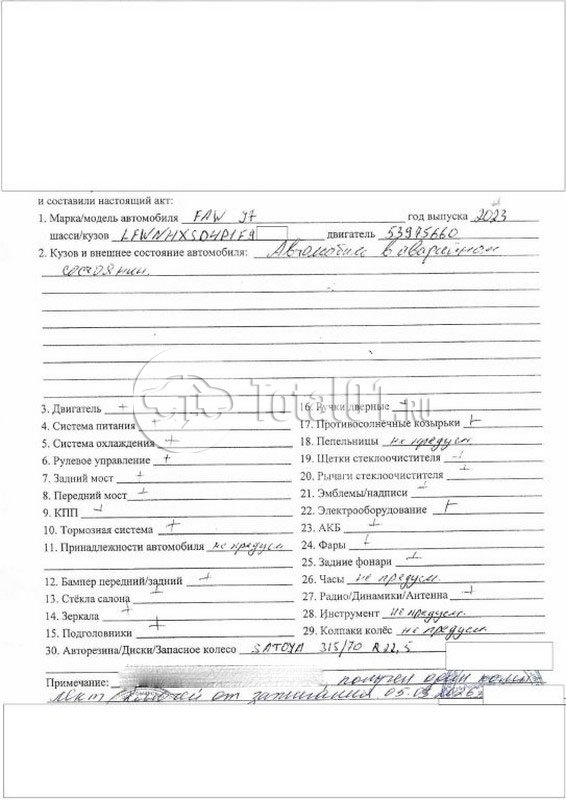 и составили настоящий акт:
1. Марка/модель автомобиля FAW J7 год выпуска 2023
шасси/кузов LFWNHXSD4P1F9 двигатель 53975660
2. Кузов и внешнее состояние автомобиля: Автомобиль в аварийном
состоянии.
Total01.ru
3. Двигатель +
16. Ручки дверные +
4. Система питания +
17. Противосолнечные козырьки +
5. Система охлаждения +
18. Пепельницы не предусм.
6. Рулевое управление +
19. Щетки стеклоочистителя +
7. Задний мост +
20. Рычаги стеклоочистителя +
8. Передний мост +
21. Эмблемы/надписи +
9. КПП +
22. Электрооборудование +
10. Тормозная система +
23. АКБ +
11. Принадлежности автомобиля не предусм.
24. Фары +
25. Задние фонари +
12. Бампер передний/задний +
26. Часы не предусм.
13. Стёкла салона +
27. Радио/Динамики/Антенна +
14. Зеркала +
28. Инструмент не предусм.
15. Подголовники +
29. Колпаки колёс не предусм.
30. Авторезина/Диски/Запасное колесо 315/70 R22,5
Примечание: получен один комп-
лект ключей от зажигания 05.03.2026г